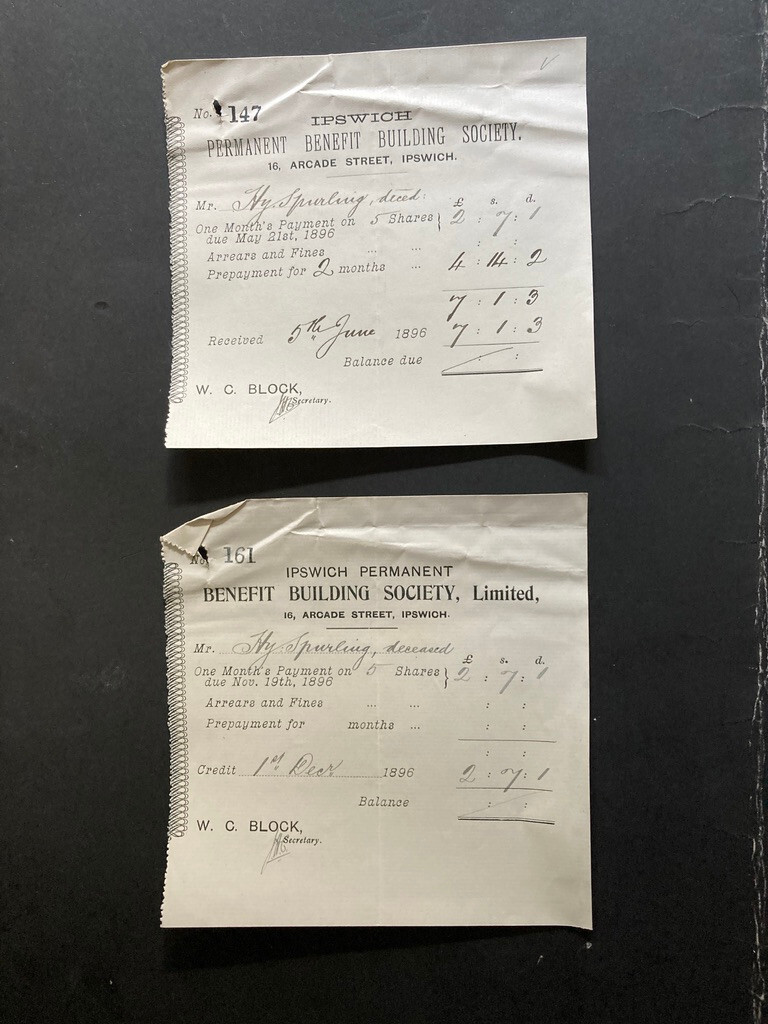 No. 147
IPSWICH
PERMANENT BENEFIT BUILDING SOCIETY.
16, ARCADE STREET, IPSWICH.
Mr. Hy Spurling, deced: £ s. d.
One Month's Payment on 5 Shares } 2 : 7 : 1
due May 21st, 1896
Arrears and Fines ... ... : :
Prepayment for 2 months ... 4 : 14 : 2
7 : 1 : 3
Received 5th June 1896 7 : 1 : 3
Balance due : :
W. C. BLOCK,
Secretary.
No. 161
IPSWICH PERMANENT
BENEFIT BUILDING SOCIETY, Limited,
16, ARCADE STREET, IPSWICH.
Mr. Hy Spurling, deceased £ s. d.
One Month's Payment on 5 Shares } 2 : 7 : 1
due Nov. 19th, 1896
Arrears and Fines ... ... : :
Prepayment for months ... : :
: :
Credit 1st Decr 1896 2 : 7 : 1
Balance : :
W. C. BLOCK,
Secretary.